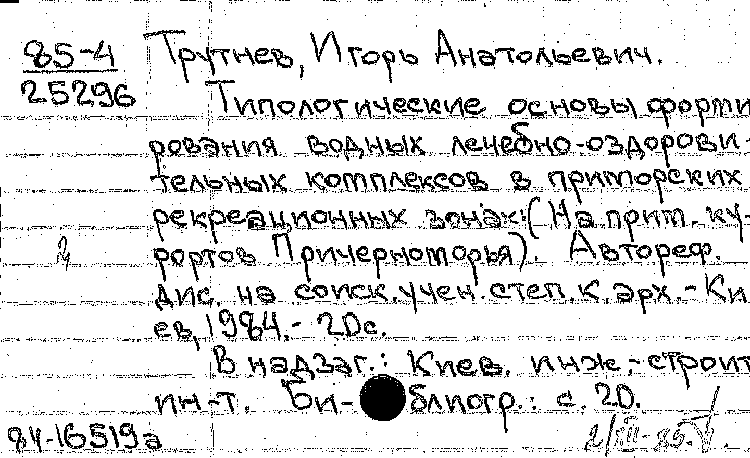 85-4 Трутнев, Игорь Анатольевич.
25296 Типологические основы форми
рования водных лечебно-оздорови-
тельных комплексов в приморских
рекреационных зонах: (На прим. ку-
рортов Причерноморья). Автореф.
дис. на соиск. учен. степ. к. арх. - Ки
ев, 1984. - 20 с.
В надзаг.: Киев. инж.-строит
ин-т. Би- блиогр.: с. 20.
84-16519а
2/III-85.